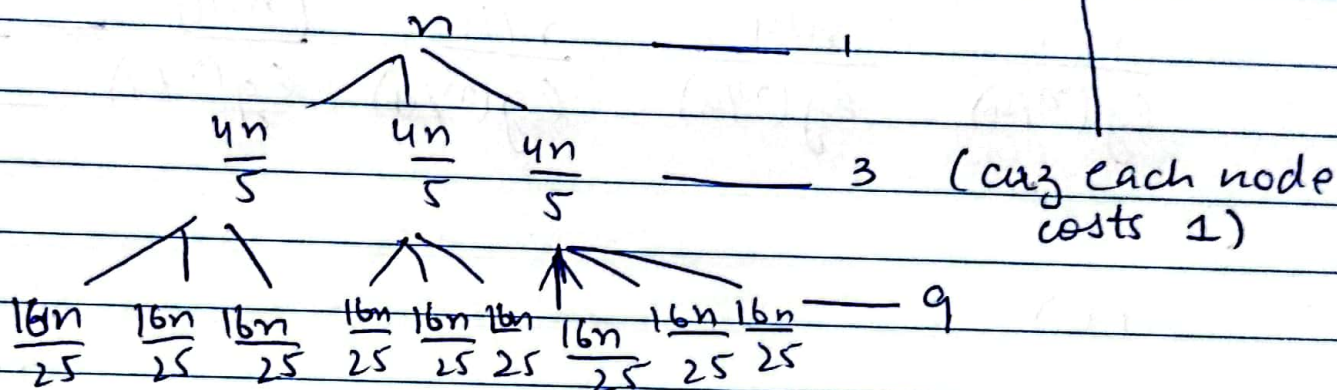 n — 1
4n/5 4n/5 4n/5 — 3 (cuz each node
costs 1)
16n/25 16n/25 16n/25 16n/25 16n/25 16n/25 16n/25 16n/25 16n/25 — 9